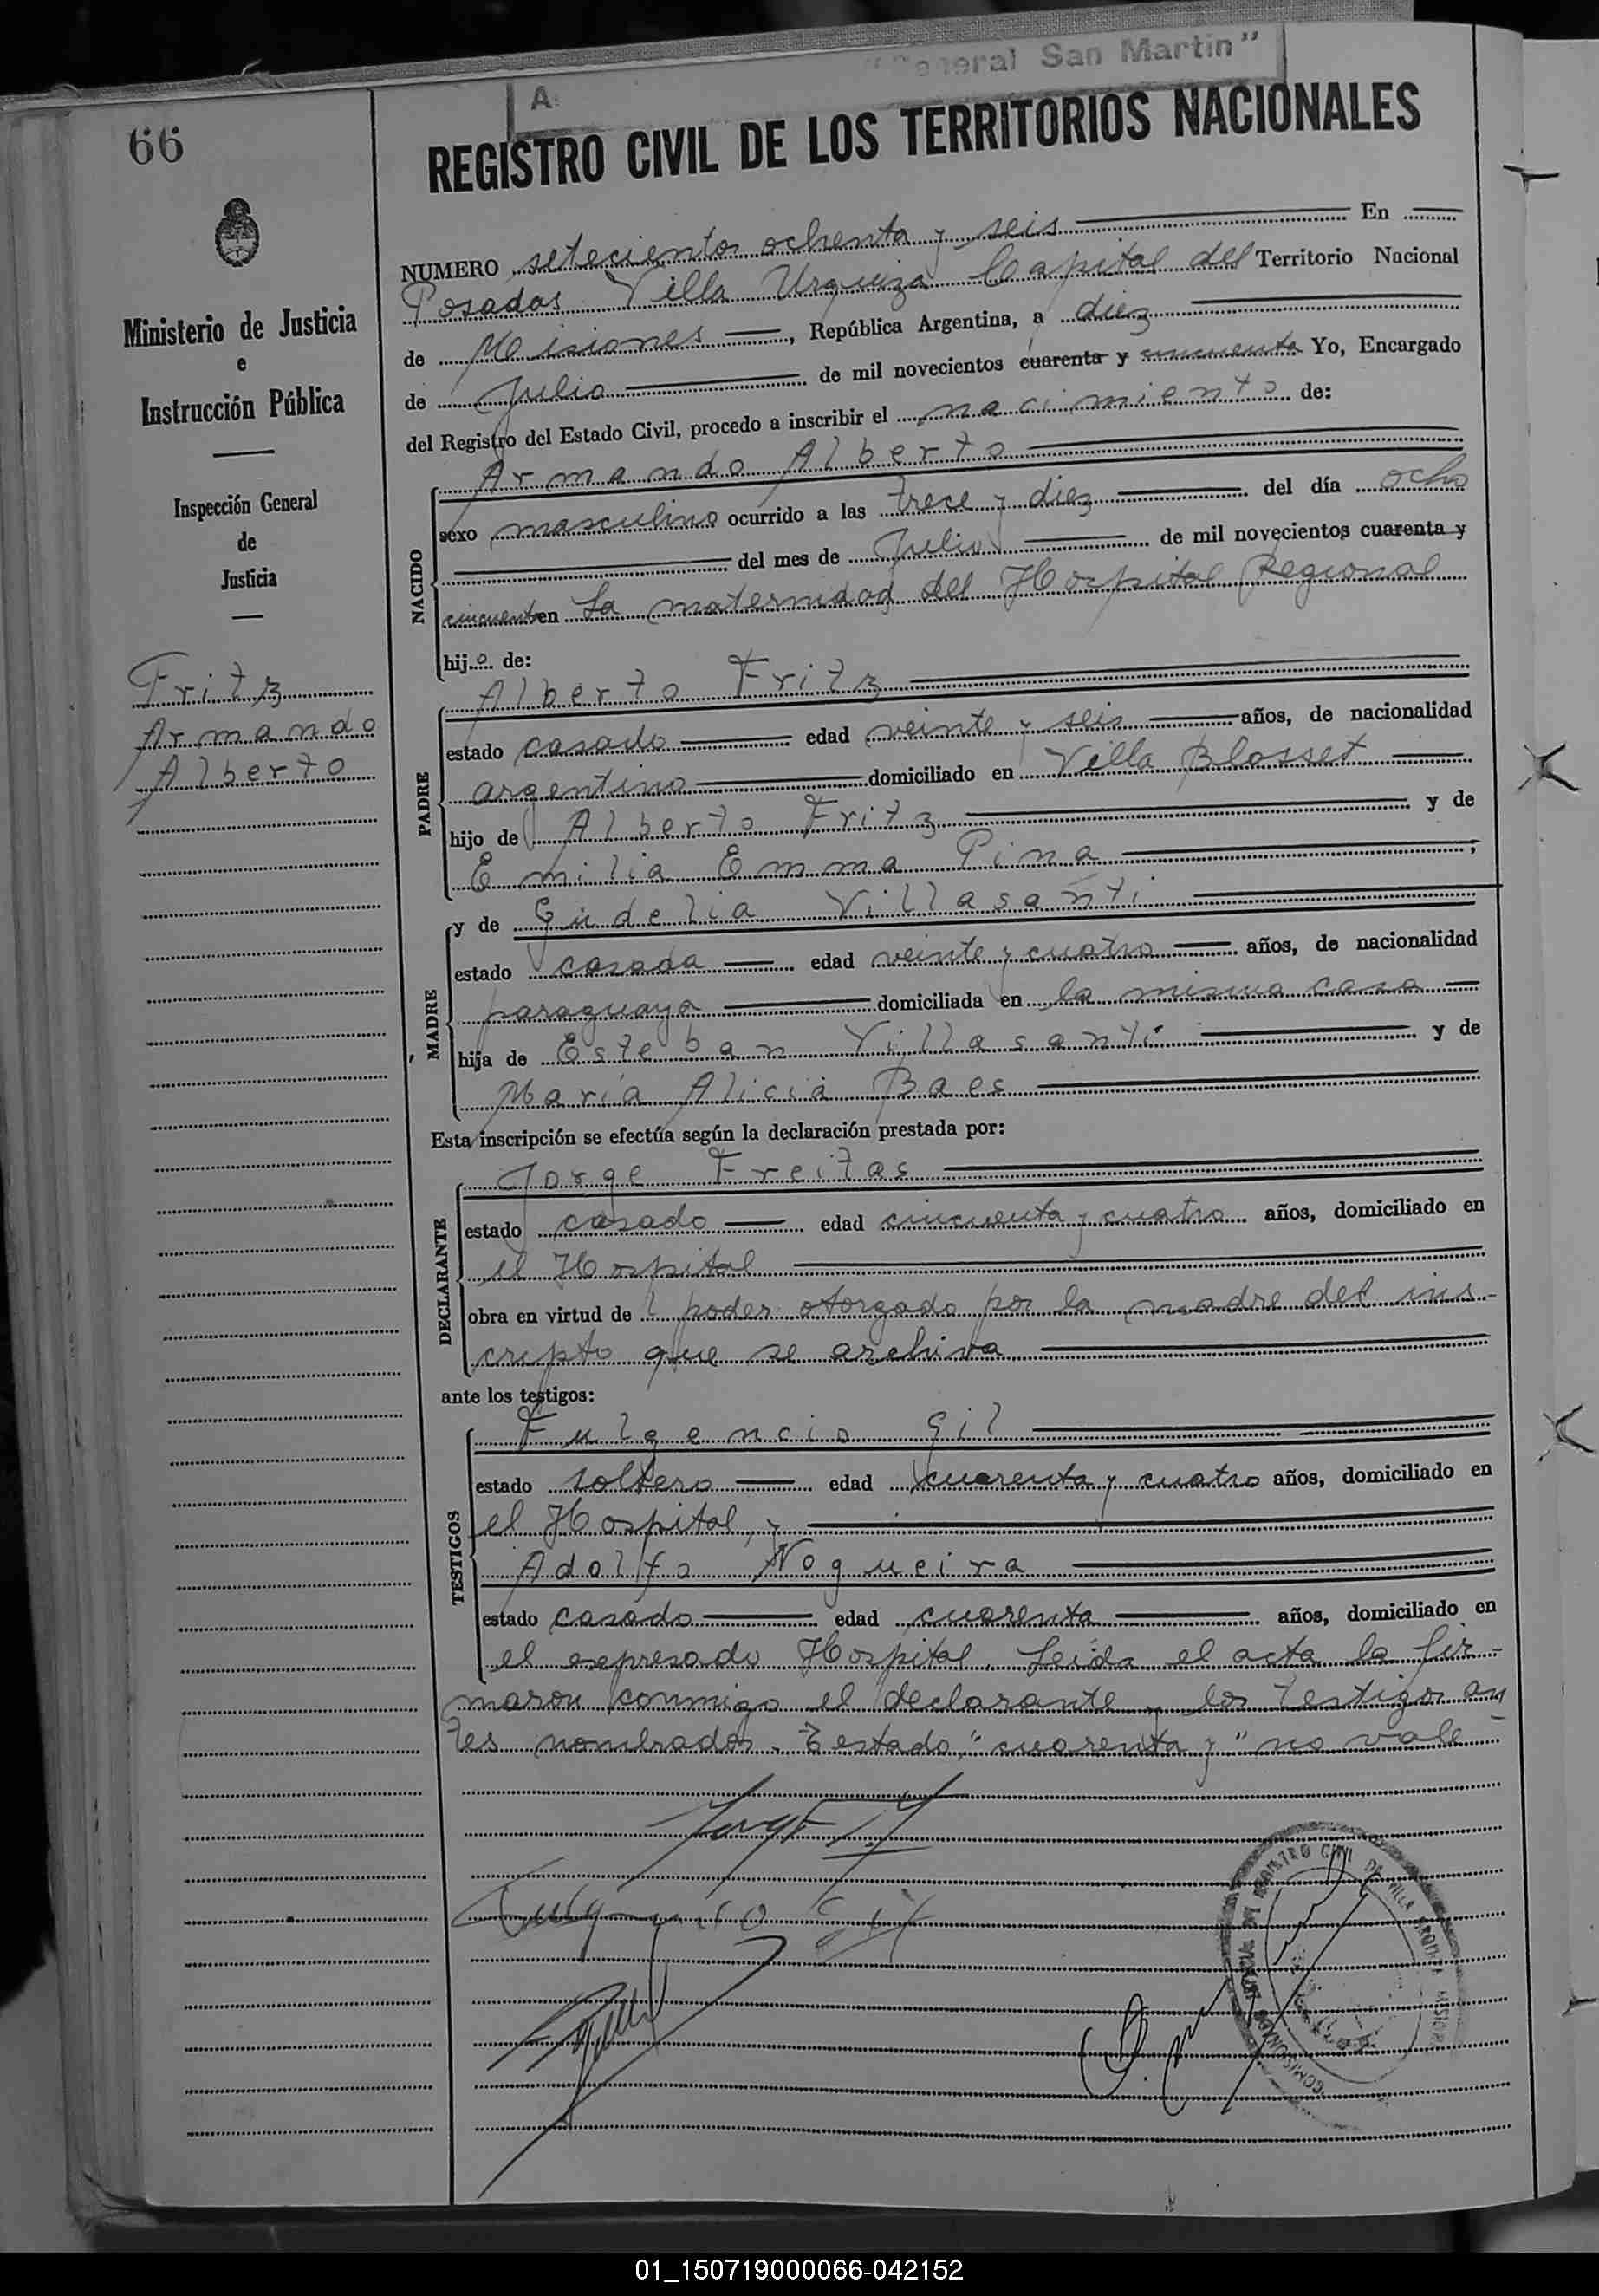 "General San Martin"
A
66
REGISTRO CIVIL DE LOS TERRITORIOS NACIONALES
NUMERO setecientos ochenta y seis En
Posadas Villa Urquiza Capital del Territorio Nacional
de Misiones, República Argentina, a diez
de Julio de mil novecientos cuarenta y cincuenta Yo, Encargado
del Registro del Estado Civil, procedo a inscribir el nacimiento de:
Armando Alberto
Ministerio de Justicia
e
Instrucción Pública
Inspección General
de
Justicia
Fritz
Armando
Alberto
NACIDO
sexo masculino ocurrido a las trece y diez del día ocho
del mes de Julio de mil novecientos cuarenta y
cincuenta en La maternidad del Hospital Regional
hijo de:
Alberto Fritz
PADRE
estado casado edad veinte y seis años, de nacionalidad
argentino domiciliado en Villa Blosset
hijo de Alberto Fritz y de
Emilia Emma Pina;
MADRE
y de Gudelia Villasanti
estado casada edad veinte y cuatro años, de nacionalidad
paraguaya domiciliada en la misma casa
hija de Esteban Villasanti y de
María Alicia Baes
Esta inscripción se efectúa según la declaración prestada por:
Jorge Freitas
DECLARANTE
estado casado edad cincuenta y cuatro años, domiciliado en
el Hospital
obra en virtud de poder otorgado por la madre del ins-
cripto que se archiva
ante los testigos:
Fulgencio Gil
TESTIGOS
estado soltero edad cuarenta y cuatro años, domiciliado en
el Hospital, y
Adolfo Nogueira
estado casado edad cuarenta años, domiciliado en
el expresado Hospital. Leída el acta la fir-
maron conmigo el declarante y los testigos an
tes nombrados. Testado: "cuarenta y" no vale
Fulgencio Gil
REGISTRO CIVIL DE VILLA URQUIZA MISIONES
01_150719000066-042152